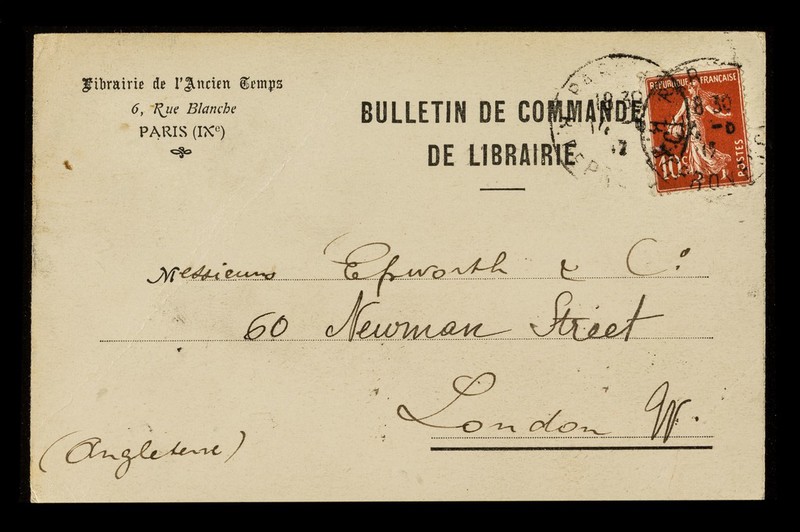 Librairie de l'Ancien Temps
6, Rue Blanche
PARIS (IXe)
BULLETIN DE COMMANDE
DE LIBRAIRIE
REPUBLIQUE FRANÇAISE
10c
POSTES
18 30
8 30
Messieurs Epworth & Co
60 Newman Street
London W.
(Angleterre)